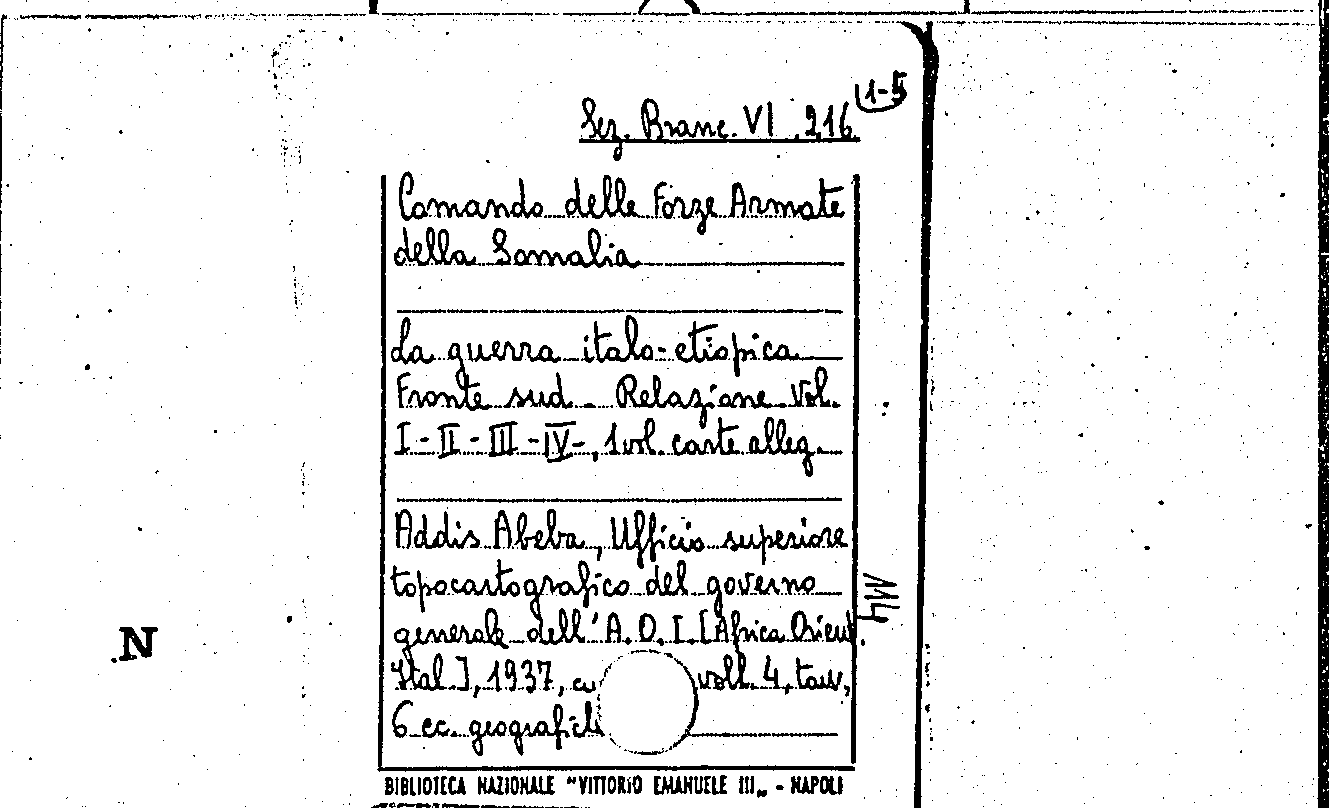 (1-5
Sez. Branc. VI . 216
Comando delle Forze Armate
della Somalia
La guerra italo-etiopica
Fronte sud. Relazione Vol.
I - II - III - IV -, 1 vol. carte alleg.
Addis Abeba, Ufficio superiore
topocartografico del governo
generale dell'A.O.I. [Africa Orient.
Ital.], 1937, voll. 4, tav,
6 cc. geografiche
N
BIBLIOTECA NAZIONALE "VITTORIO EMANUELE III„ - NAPOLI